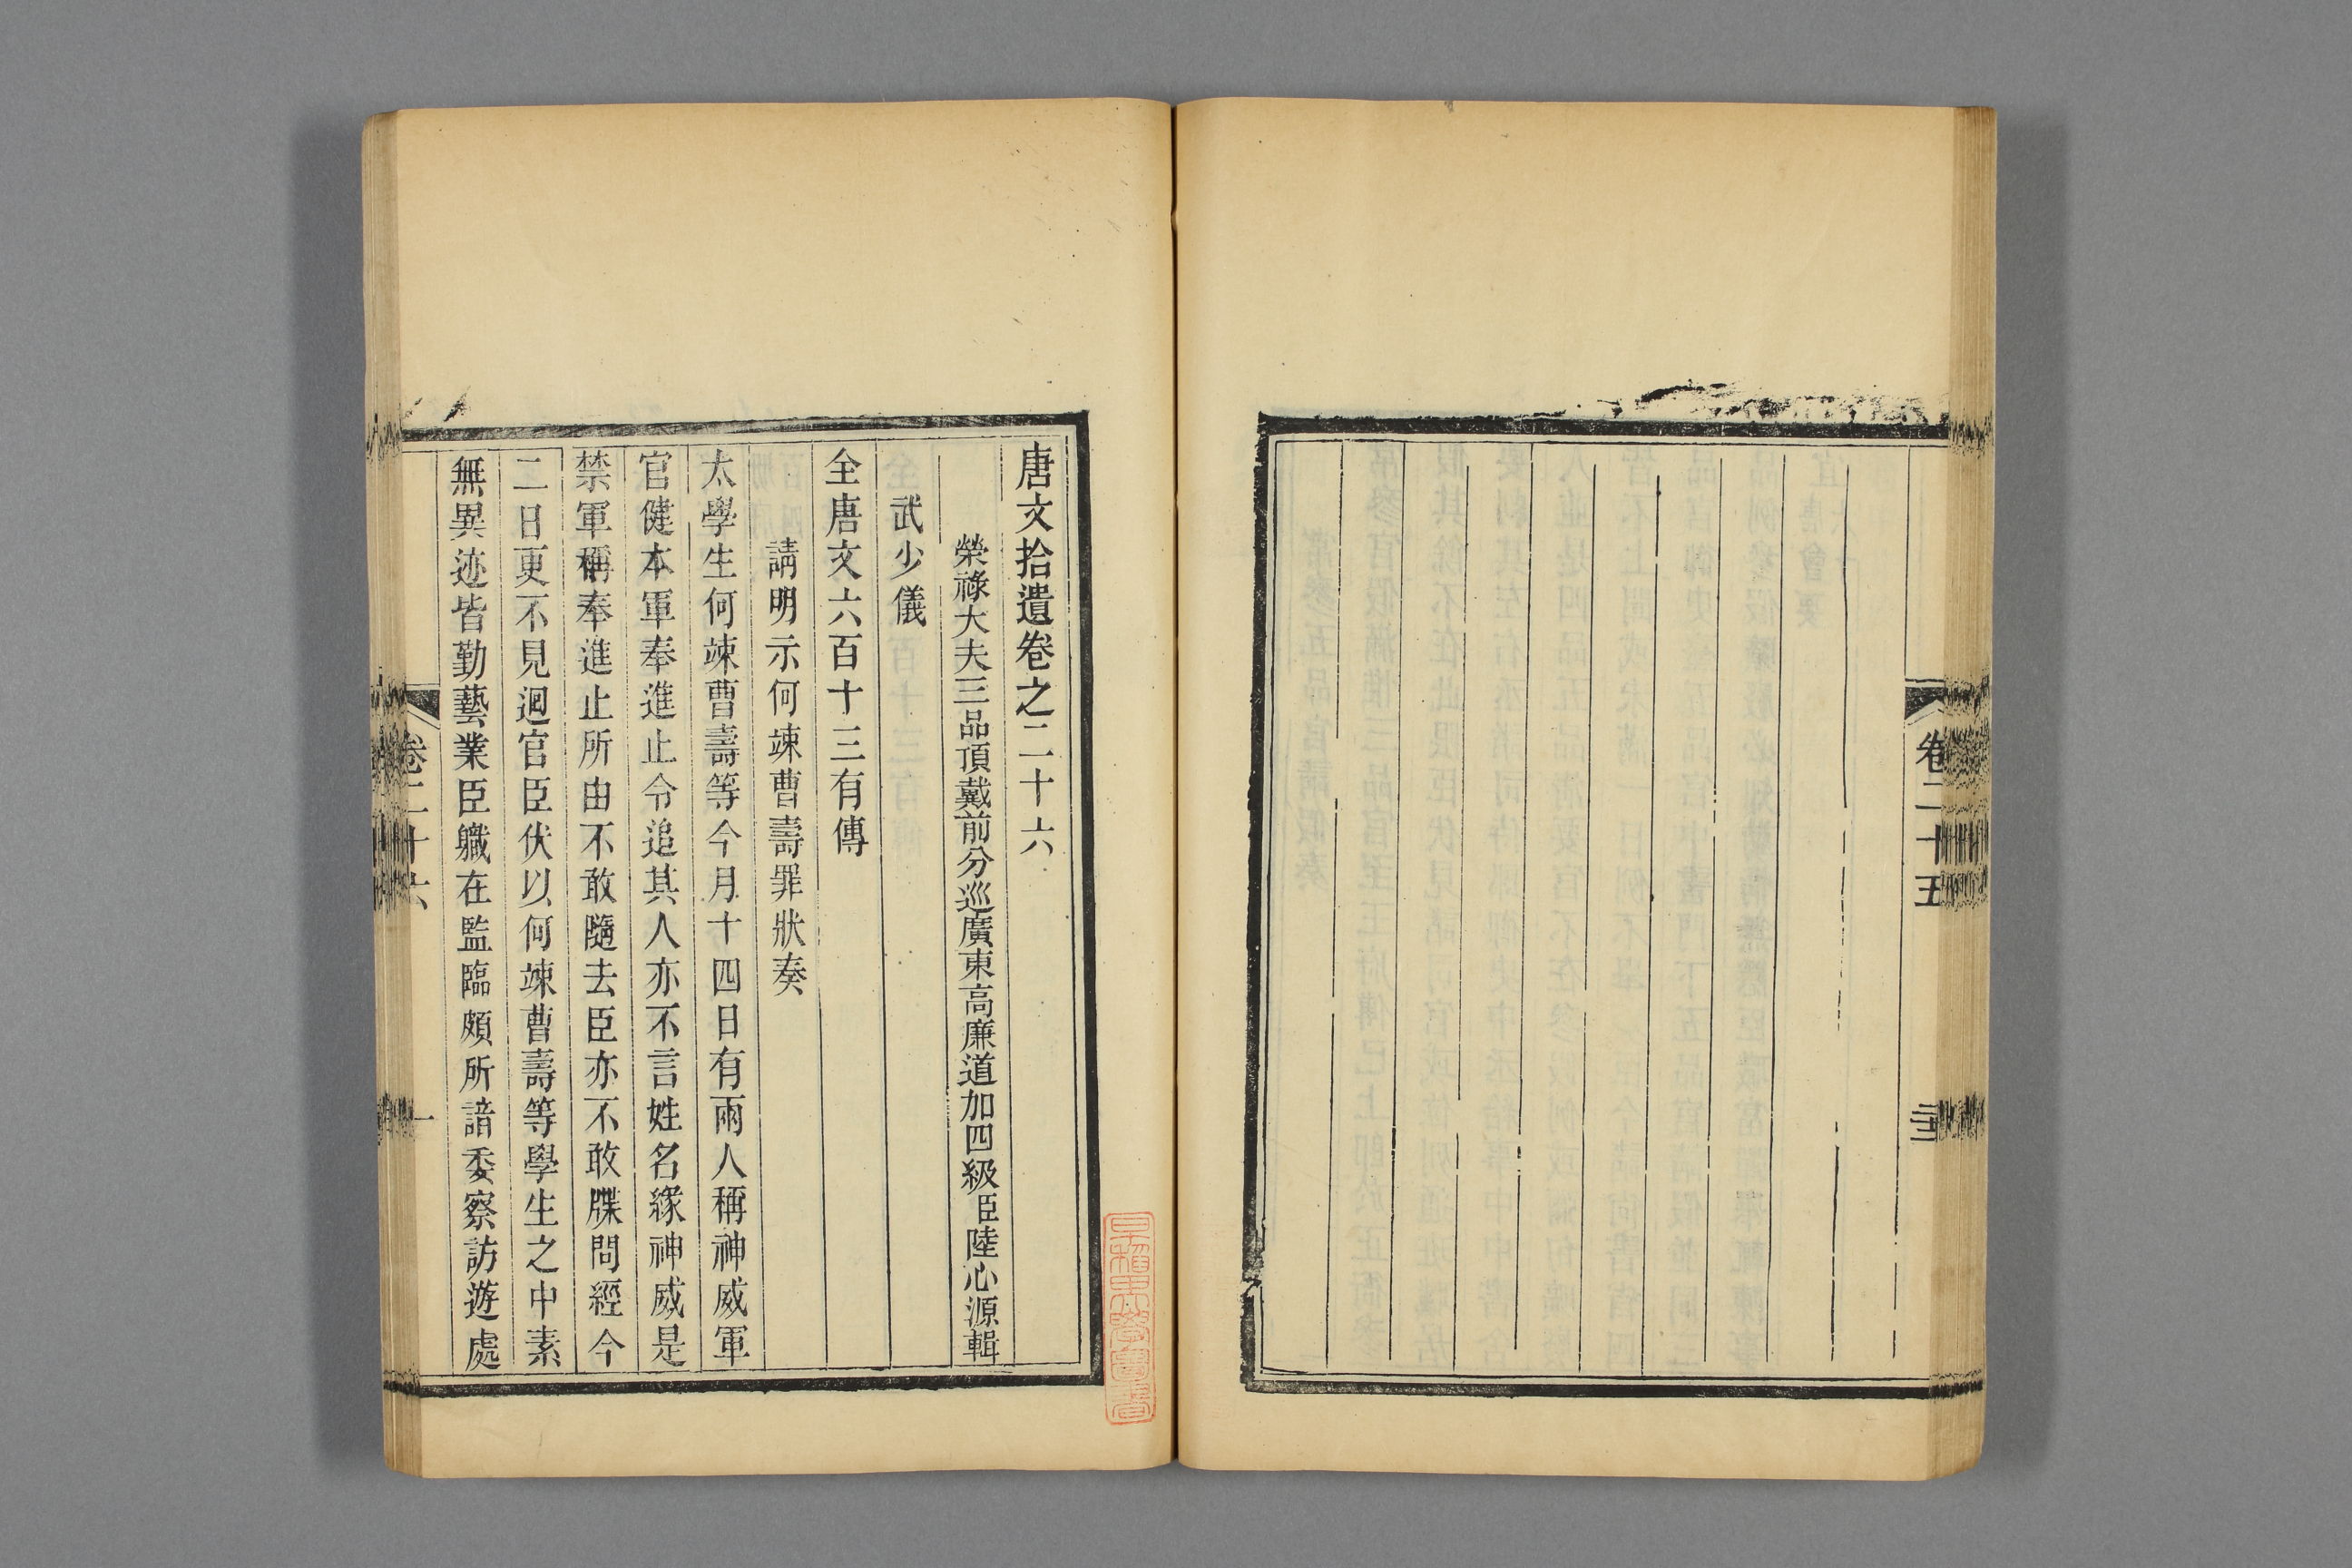 卷二十五
唐文拾遺卷之二十六
榮祿大夫三品頂戴前分巡廣東高廉道加四級臣陸心源輯
武少儀
全唐文六百十三有傳
請明示何竦曹壽罪狀奏
太學生何竦曹壽等今月十四日有兩人稱神威軍
官健本軍奉進止令追其人亦不言姓名緣神威是
禁軍稱奉進止所由不敢隨去臣亦不敢牒問經今
二日更不見迴官臣伏以何竦曹壽等學生之中素
無異迹皆勤藝業臣職在監臨頗所諳委察訪遊處
卷二十六
一